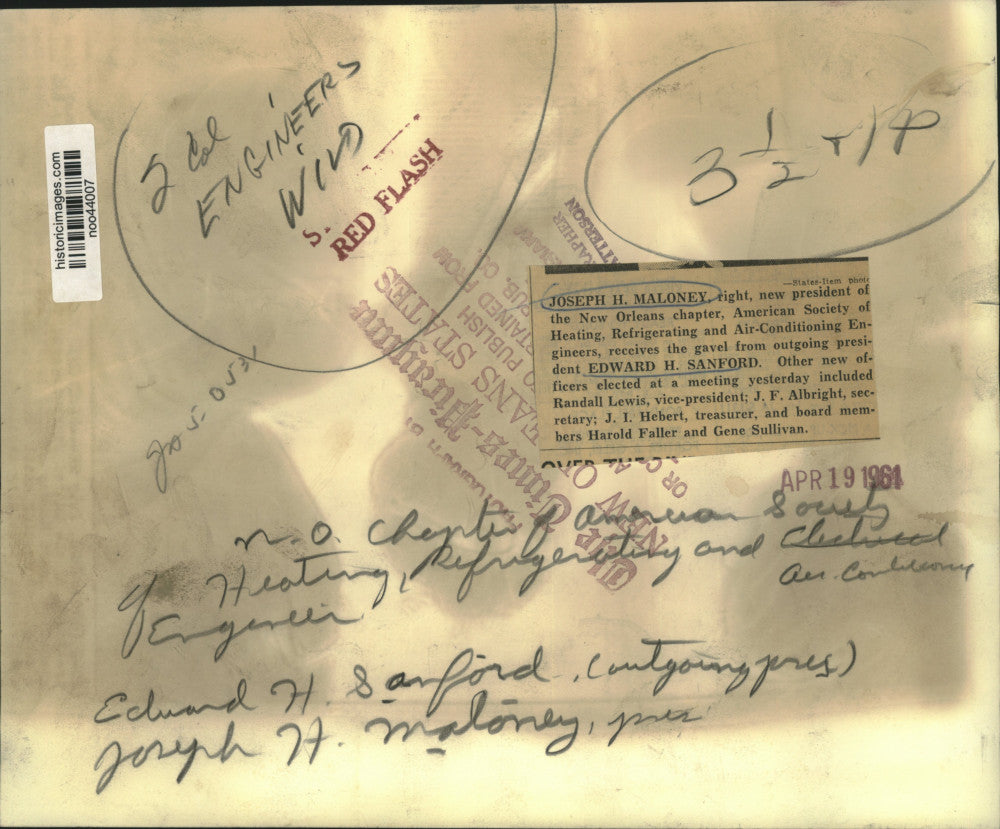 2 Col
ENGINEERS
WILD
S.
RED FLASH
3 1/2
historicimages.com
noo44007
—States-Item photo
JOSEPH H. MALONEY, right, new president of
the New Orleans chapter, American Society of
Heating, Refrigerating and Air-Conditioning En-
gineers, receives the gavel from outgoing presi-
dent EDWARD H. SANFORD. Other new of-
ficers elected at a meeting yesterday included
Randall Lewis, vice-president; J. F. Albright, sec-
retary; J. I. Hebert, treasurer, and board mem-
bers Harold Faller and Gene Sullivan.
The Times-Picayune
NEW ORLEANS STATES
APR 19 1961
N.O. Chapter of American Society
of Heating, Refrigerating and
Air Conditioning
Engineer
Edward H. Sanford, (outgoing pres)
Joseph H. Maloney, pres